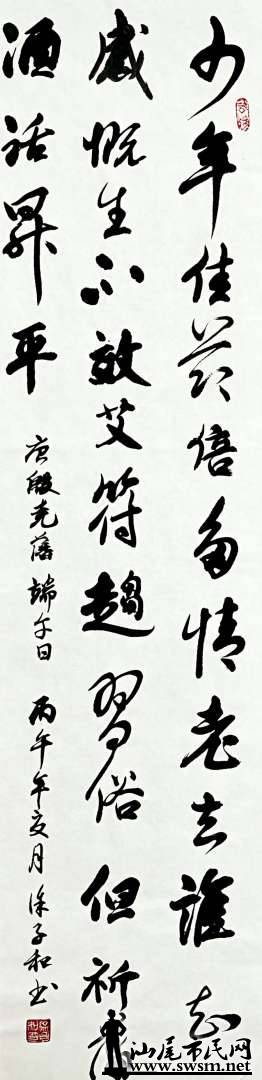 少年佳节倍多情老去誰知
感慨生不效艾符趨習俗但祈蒲
酒话昇平
唐殷尧藩端午日 丙午年夏月徐子和书
汕尾市民网
www.swsm.net